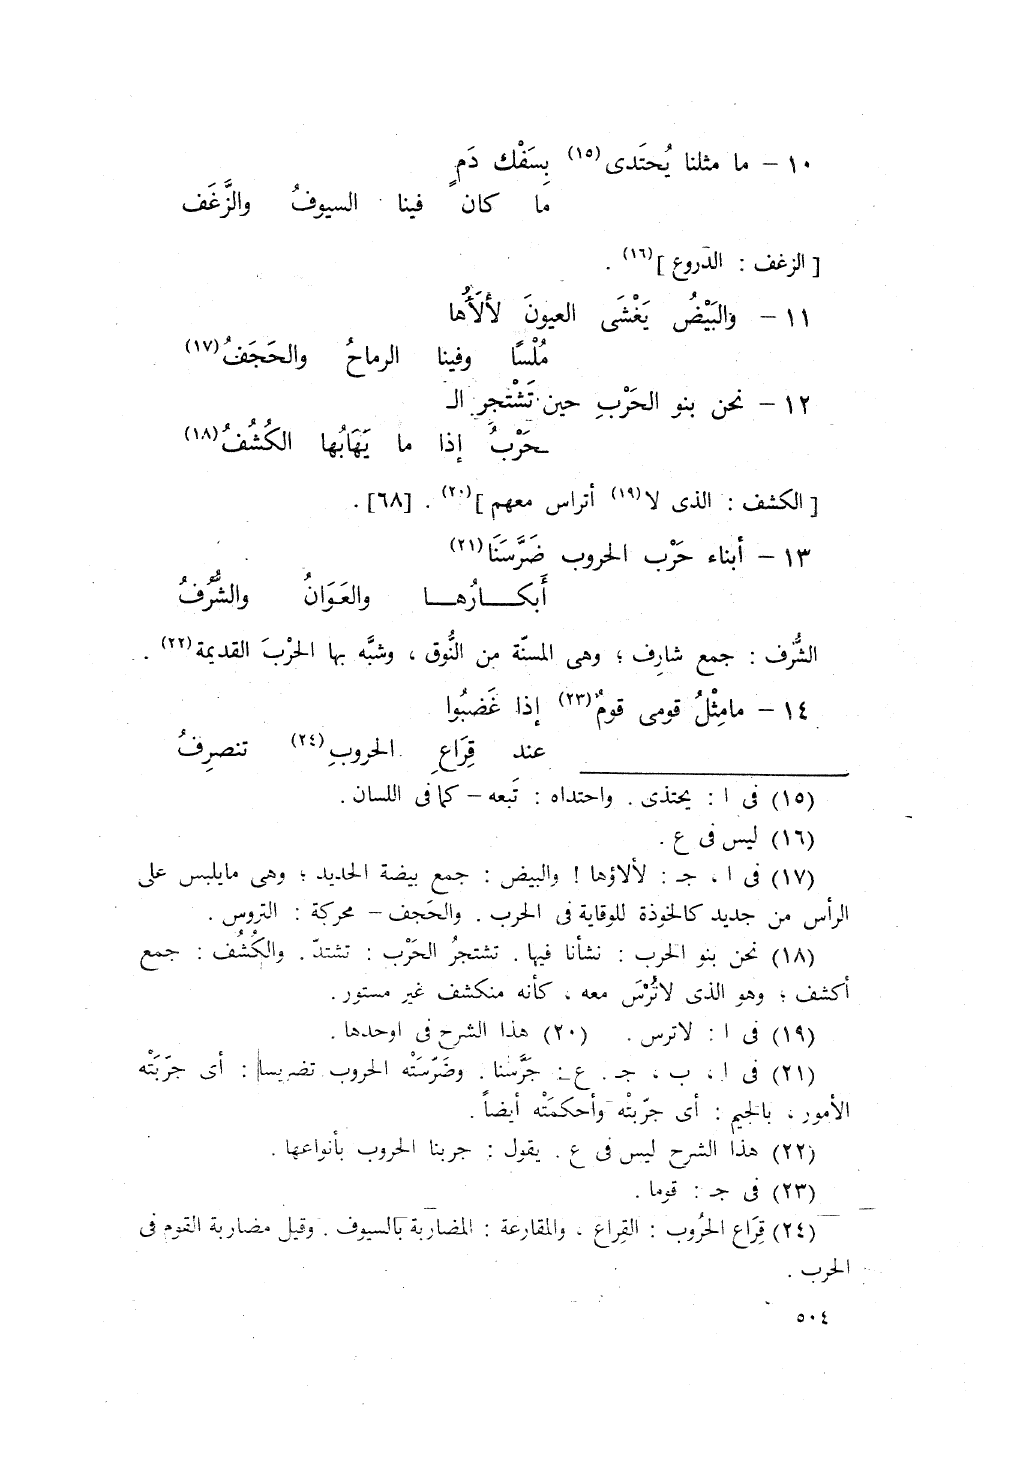 ١٠ – ما مثلنا يُحتَدى(١٥) بِسَفْك دَمٍ
ما كان فينا السيوفُ والزَّغَف
[ الزغف : الدروع ](١٦) .
١١ – والبَيْضُ يَغْشَى العيونَ لألَأُها
مُلْسًا وفينا الرماحُ والحَجَفُ(١٧)
١٢ – نحن بنو الحَرْبِ حين تَشْتجر الـ
ـحَرْبُ إذا ما يَهَابُها الكُشُفُ(١٨)
[ الكشف : الذى لا(١٩) أتراس معهم ](٢٠) . [٦٨] .
١٣ – أبناء حَرْب الحروب ضَرَّسَنَا(٢١)
أَبكـــارُهـــا والعَوَانُ والشُّرَّفُ
الشُّرَّف : جمع شارِف ؛ وهى المسنّة من النُّوق ، وشبَّه بها الحَرْبَ القديمة(٢٢) .
١٤ – مامِثْلُ قومى قومٌ(٢٣) إذا غَضبُوا
عند قِرَاعِ الحروبِ(٢٤) تنصرِفُ
(١٥) فى ا : يحتذى . واحتداه : تَبعه – كما فى اللسان .
(١٦) ليس فى ع .
(١٧) فى ا ، جـ : لألاؤها ! والبيض : جمع بيضة الحديد ؛ وهى مايلبس على
الرأس من جديد كالخوذة للوقاية فى الحرب . والحَجف – محركة : التروس .
(١٨) نحن بنو الحرب : نشأنا فيها . تشتجرُ الحَرْب : تشتدّ . والكُشُف : جمع
أكشف ؛ وهو الذى لاتُرْسَ معه ، كأنه منكشف غير مستور .
(١٩) فى ا : لاترس . (٢٠) هذا الشرح فى اوحدها .
(٢١) فى ا ، ب ، جـ . ع : جَرَّسنا . وضَرّسَتْه الحروب تضريسا : أى جرّبَتْه
الأمور ، بالجيم : أى جرّبتْه وأحكمَتْه أيضاً .
(٢٢) هذا الشرح ليس فى ع . يقول : جربنا الحروب بأنواعها .
(٢٣) فى جـ : قوما .
(٢٤) قِرَاع الحُروب : القِراع ، والمقارعة : المضاربة بالسيوف . وقيل مضاربة القوم فى
الحرب .
٥٠٤